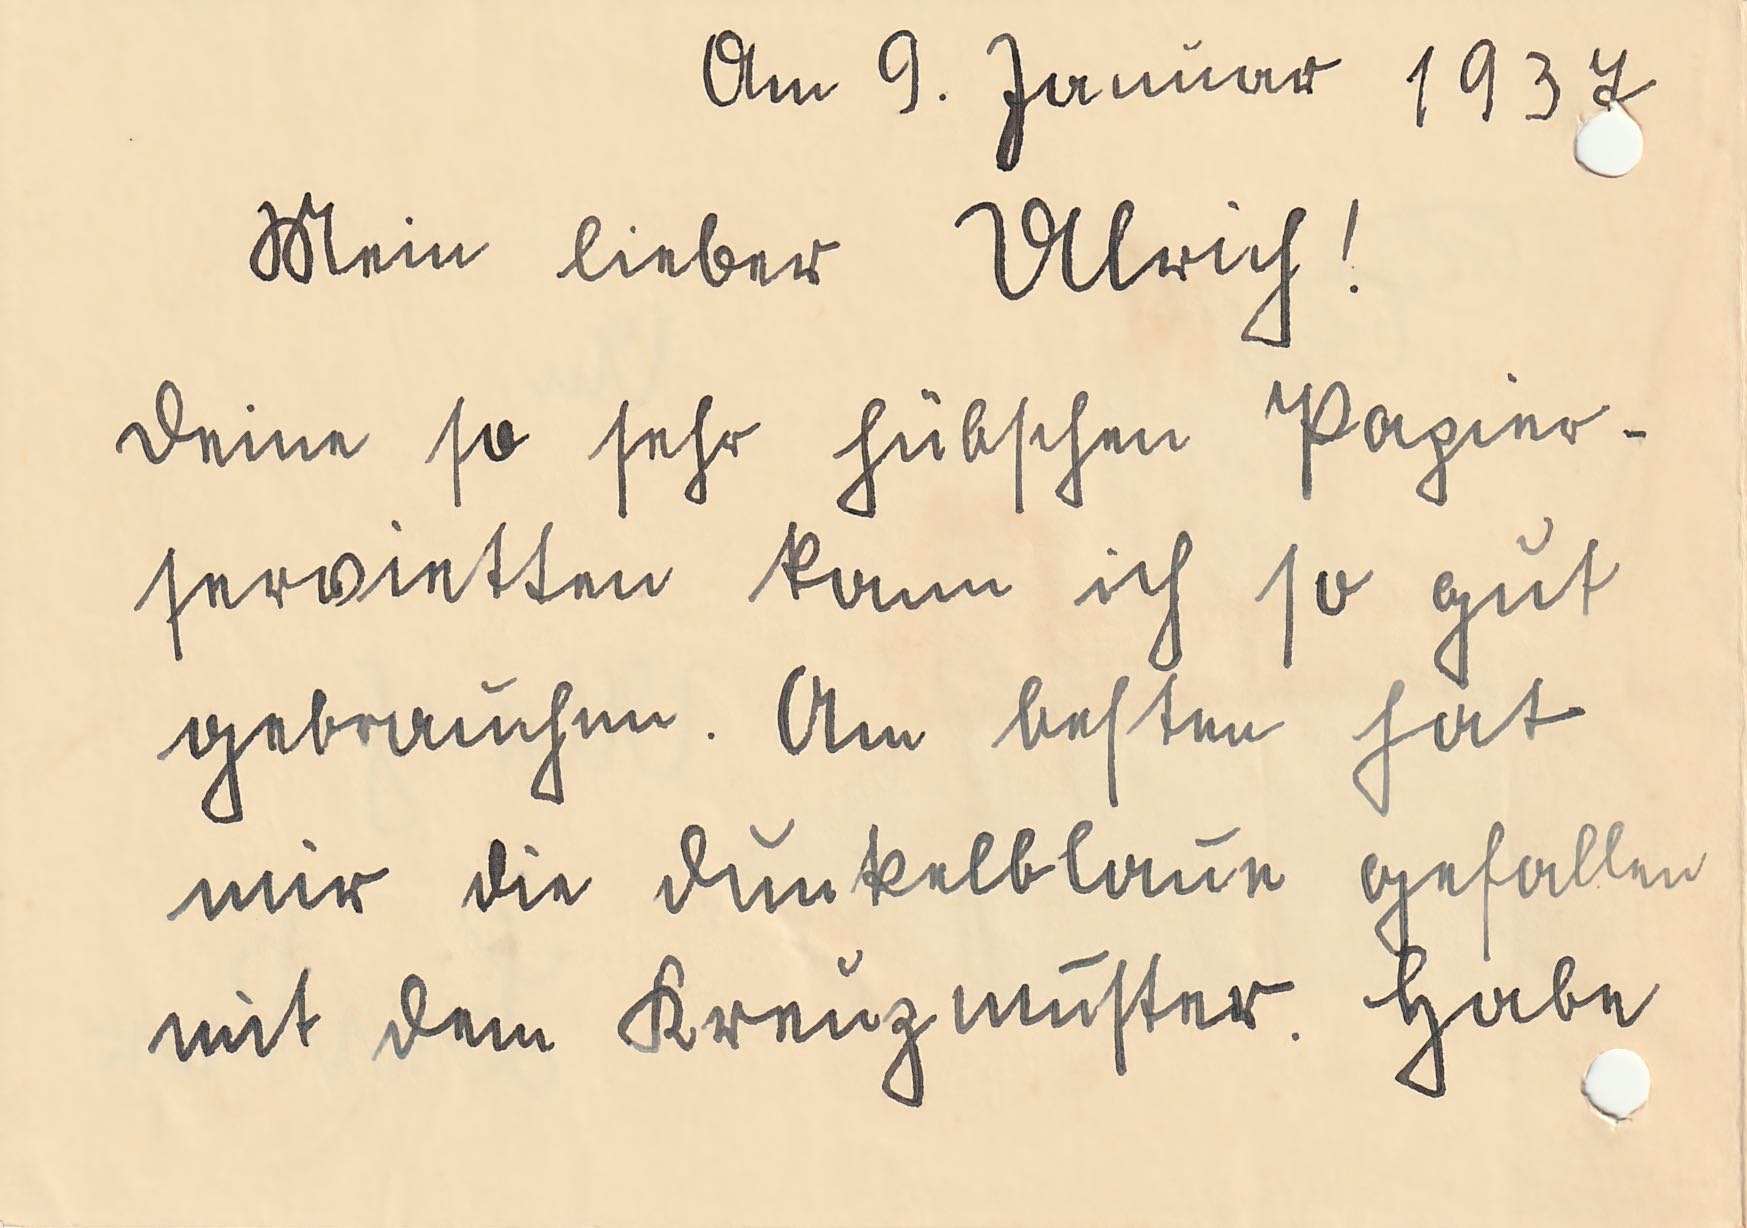 Am 9. Januar 1937
Mein lieber Ulrich!
Deine so sehr hübschen Papier-
servietten kann ich so gut
gebrauchen. Am besten hat
mir die dunkelblaue gefallen
mit dem Kreuzmuster. Habe